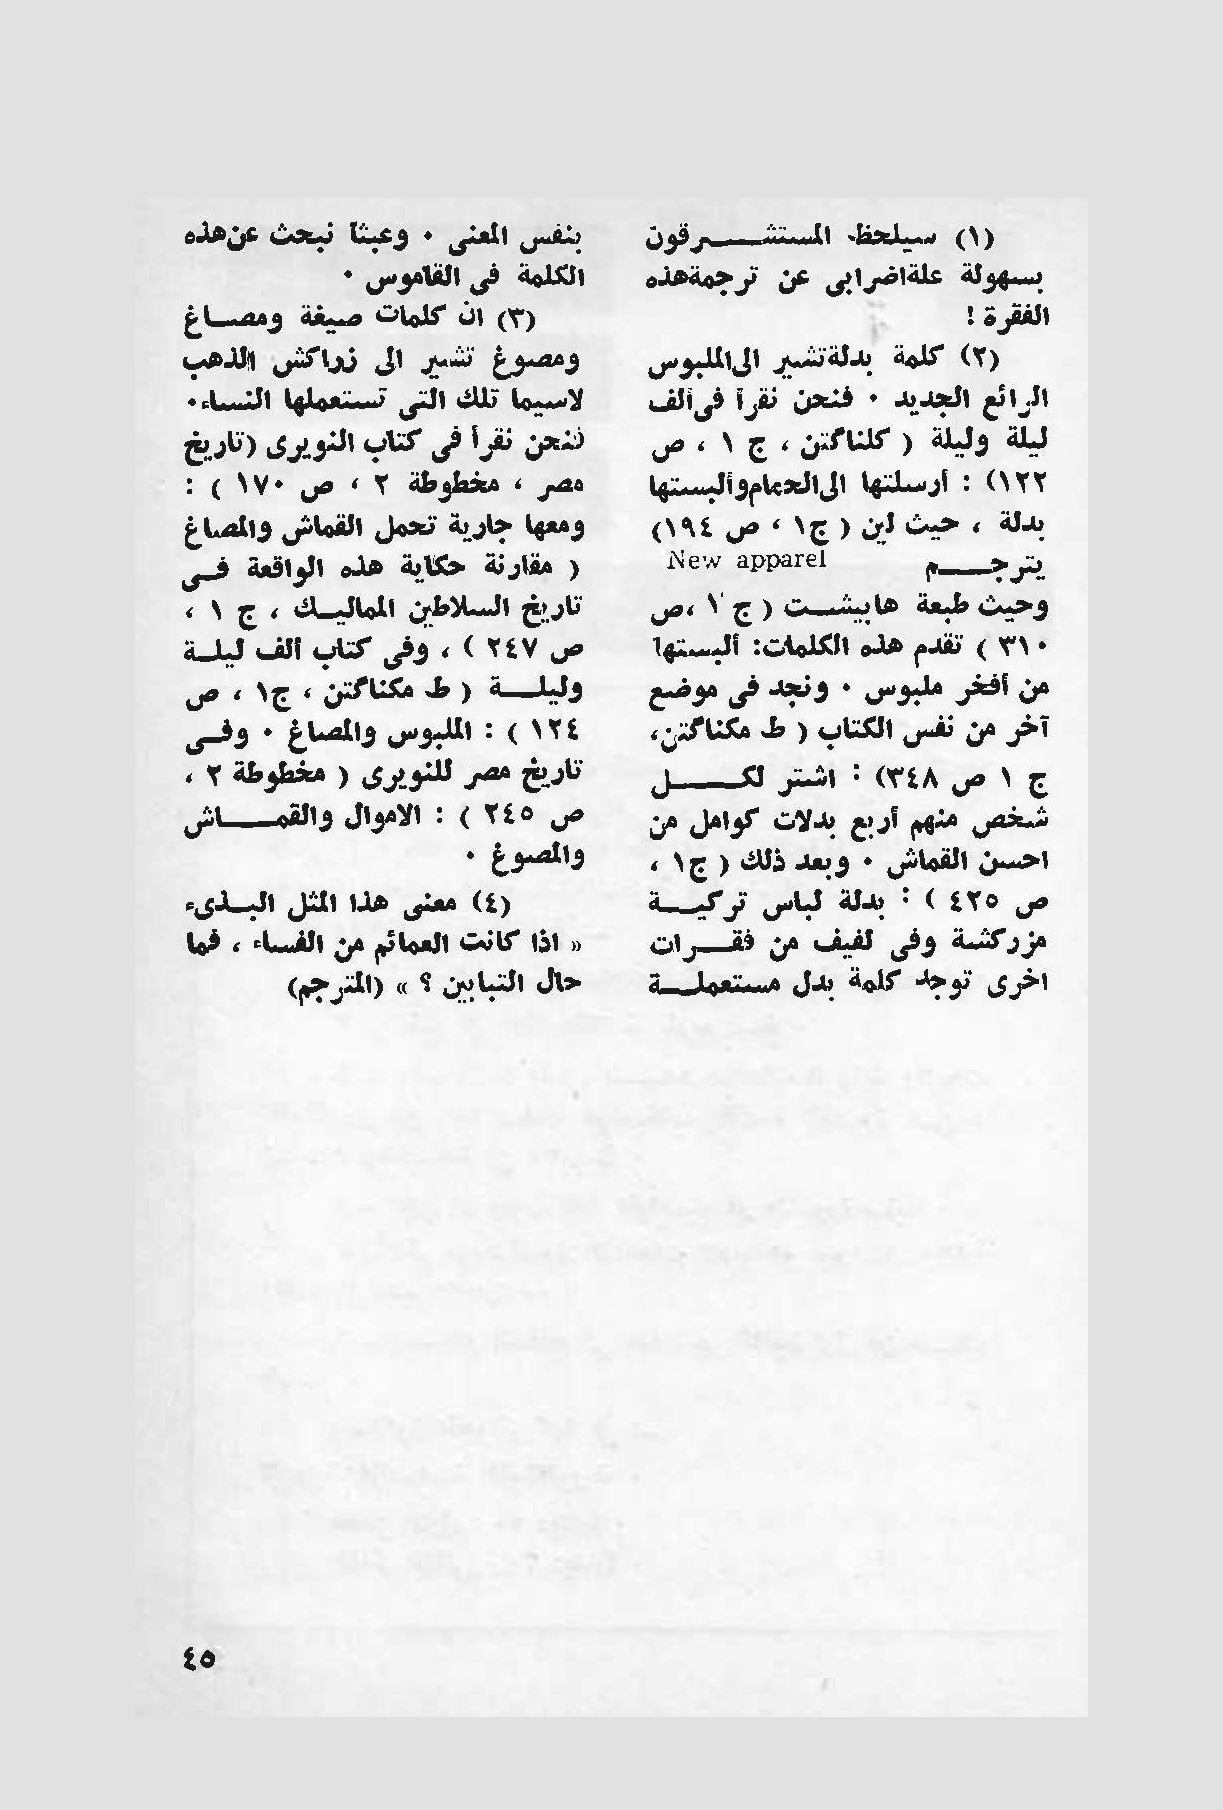 (١) سيلحظ المستشـــرقون
بسهولة علةاضرابى عن ترجمةهذه
الفقرة !
(٢) كلمة بدلةتشير الىالملبوس
الرائع الجديد ٠ فنحن نقرأ فىألف
ليلة وليلة ( كلناگتن ، ج ١ ، ص
١٢٢) : أرسلتها الىالحمام وألبستها
بدلة ، حيث لين ( ج١ ، ص ١٩٤)
يترجـــم New apparel
وحيث طبعة هابيشـت ( ج ١ ،ص
٣١٠ ) تقدم هذه الكلمات: ألبستها
من أفخر ملبوس ٠ ونجد فى موضع
آخر من نفس الكتاب ( ط مكناگتن،
ج ١ ص ٣٤٨) : اشتر لكـــل
شخص منهم أربع بدلات كوامل من
احسن القماش ٠ وبعد ذلك ( ج١ ،
ص ٤٢٥ ) : بدلة لباس تركيـة
مزركشة وفى لفيف من فقـرات
اخرى توجد كلمة بدل مستعملـة
بنفس المعنى ٠ وعبثا نبحث عن هذه
الكلمة فى القاموس ٠
(٣) ان كلمات صيغة ومصـاغ
ومصوغ تشير الى زراكش الذهب
لاسيما تلك التى تستعملها النساء٠
فنحن نقرأ فى كتاب النويرى (تاريخ
مصر ، مخطوطة ٢ ، ص ١٧٠ ) :
ومعها جارية تحمل القماش والمصاغ
( مقارنة حكاية هذه الواقعة فـى
تاريخ السلاطين المماليـك ، ج ١ ،
ص ٢٤٧ ) ، وفى كتاب ألف ليـلة
وليلـة ( ط مكناگتن ، ج١ ، ص
١٢٤ ) : الملبوس والمصاغ ٠ وفـى
تاريخ مصر للنويرى ( مخطوطة ٢ ،
ص ٢٤٥ ) : الاموال والقمـــاش
والمصوغ ٠
(٤) معنى هذا المثل البـذىء
« اذا كانت العمائم من الفساء ، فما
حال التبابين ؟ » (المترجم)
٤٥